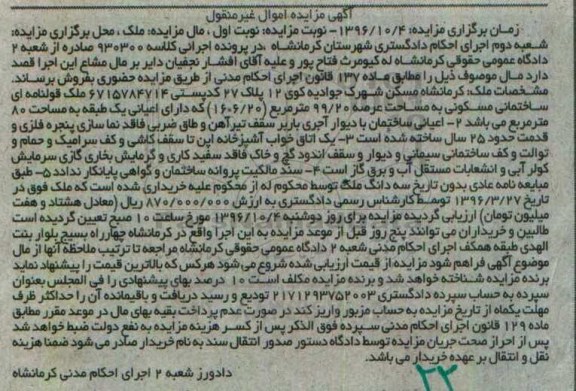 آگهی مزایده اموال غیرمنقول
زمان برگزاری مزایده: ۱۳۹۶/۱۰/۴- نوبت مزایده: نوبت اول ، مال مزایده: ملک ، محل برگزاری مزایده:
شعبه دوم اجرای احکام دادگستری شهرستان کرمانشاه ،در پرونده اجرائی کلاسه ۹۳۰۳۰۰ صادره از شعبه ۲
دادگاه عمومی حقوقی کرمانشاه له کیومرث فتاح پور و علیه آقای افشار نجفیان دایر بر مال مشاع این اجرا قصد
دارد مال موصوف ذیل را مطابق ماده ۱۳۷ قانون اجرای احکام مدنی از طریق مزایده حضوری بفروش برساند.
مشخصات ملک: کرمانشاه مسکن شهرک جوادیه کوی ۱۲ پلاک ۲۷ کدپستی ۶۷۱۵۷۸۴۷۱۴ ملک قولنامه ای
ساختمانی مسکونی به مساحت عرصه ۹۹/۲۰ مترمربع (۱۶۰۶/۲۰) که دارای اعیانی یک طبقه به مساحت ۸۰
مترمربع می باشد ۲- اعیانی ساختمان با دیوار آجری باربر سقف تیرآهن و طاق ضربی فاقد نما سازی پنجره فلزی و
قدمت حدود ۲۵ سال ساخته شده است ۳- یک اتاق خواب آشپزخانه اپن تا سقف کاشی و کف سرامیک و حمام و
توالت و کف ساختمانی سیمانی و دیوار و سقف اندود گچ و خاک فاقد سفید کاری و گرمایش بخاری گازی سرمایش
کولر آبی و انشعابات مستقل آب و برق گاز است ۴- سند مالکیت پروانه ساختمان و گواهی پایانکار ندارد ۵- طبق
مبایعه نامه عادی بدون تاریخ سه دانگ ملک توسط محکوم له از محکوم علیه خریداری شده است که ملک فوق در
تاریخ ۱۳۹۶/۳/۲۷ توسط کارشناس رسمی دادگستری به ارزش ۸۷۰/۰۰۰/۰۰۰ ریال (معادل هشتاد و هفت
میلیون تومان) ارزیابی گردیده مزایده برای روز دوشنبه ۱۳۹۶/۱۰/۴ مورخ ساعت ۱۰ صبح تعیین گردیده است
طالبین و خریداران می توانند پنج روز قبل از موعد مزایده به این اجرا واقع در کرمانشاه چهارراه بسیج بلوار بنت
الهدی طبقه همکف اجرای احکام مدنی شعبه ۲ دادگاه عمومی حقوقی کرمانشاه مراجعه تا ترتیب ملاحظه آنها از مال
موضوع آگهی فراهم شود مزایده از قیمت ارزیابی شده شروع می شود هرکس که بالاترین قیمت را پیشنهاد نماید
برنده مزایده شناخته خواهد شد و برنده مزایده مکلف است ۱۰ درصد بهای پیشنهادی را فی المجلس بعنوان
سپرده به حساب سپرده دادگستری ۲۱۷۱۲۹۳۷۵۲۰۰۳ تودیع و رسید دریافت و باقیمانده آن را حداکثر ظرف
مهلت یکماه از تاریخ مزایده به حساب مزبور واریز کند در صورت عدم پرداخت بقیه بهای مال در موعد مقرر مطابق
ماده ۱۲۹ قانون اجرای احکام مدنی سپرده فوق الذکر پس از کسر هزینه مزایده به نفع دولت ضبط خواهد شد
پس از احراز صحت جریان مزایده توسط دادگاه دستور صدور انتقال سند به نام خریدار صادر می شود ضمنا هزینه
نقل و انتقال بر عهده خریدار می باشد.
دادورز شعبه ۲ اجرای احکام مدنی کرمانشاه
۲۲